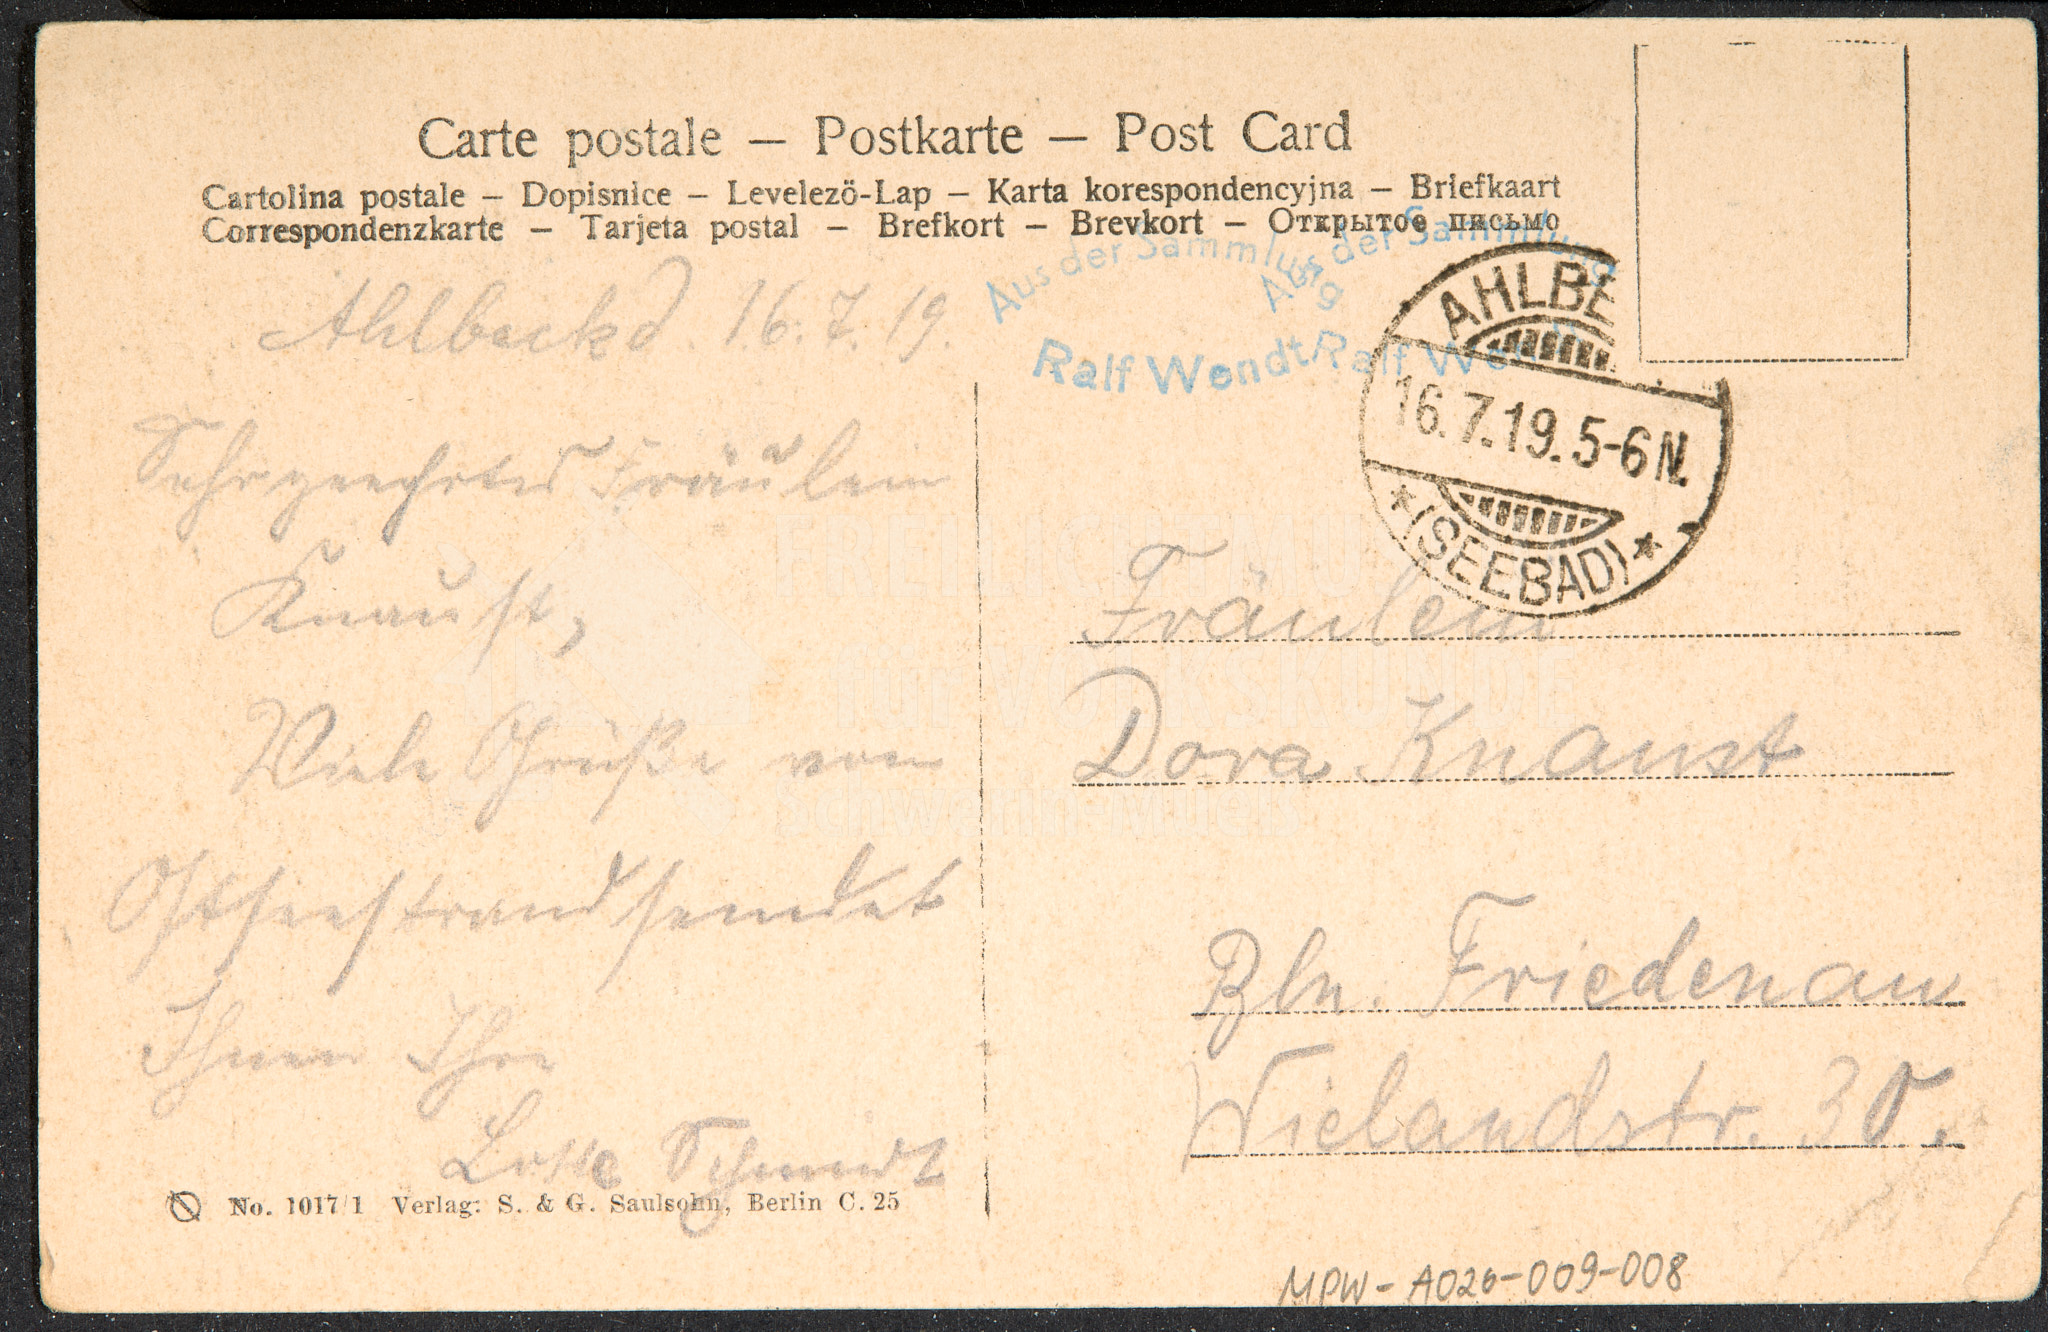 Carte postale — Postkarte — Post Card
Cartolina postale – Dopisnice – Levelezö-Lap – Karta korespondencyjna – Briefkaart
Correspondenzkarte – Tarjeta postal – Brefkort – Brevkort – Открытое письмо
Aus der Sammlung
Ralf Wendt
Aus der Sammlung
Ralf Wen
AHLBE
16.7.19. 5-6 N.
★ (SEEBAD) ★
Ahlbeck d. 16. 7. 19.
Sehr geehrtes Fräulein
Knaust,
Viele Grüße vom
Ostseestrand sendet
Ihnen Ihre
Lotte Schmidt
Fräulein
Dora Knaust
Bln. Friedenau
Wielandstr. 30.
FREILICHTMU
für VOLKSKUNDE
Schwerin-Mueß
No. 1017/1 Verlag: S. & G. Saulsohn, Berlin C. 25
MPW-A026-009-008